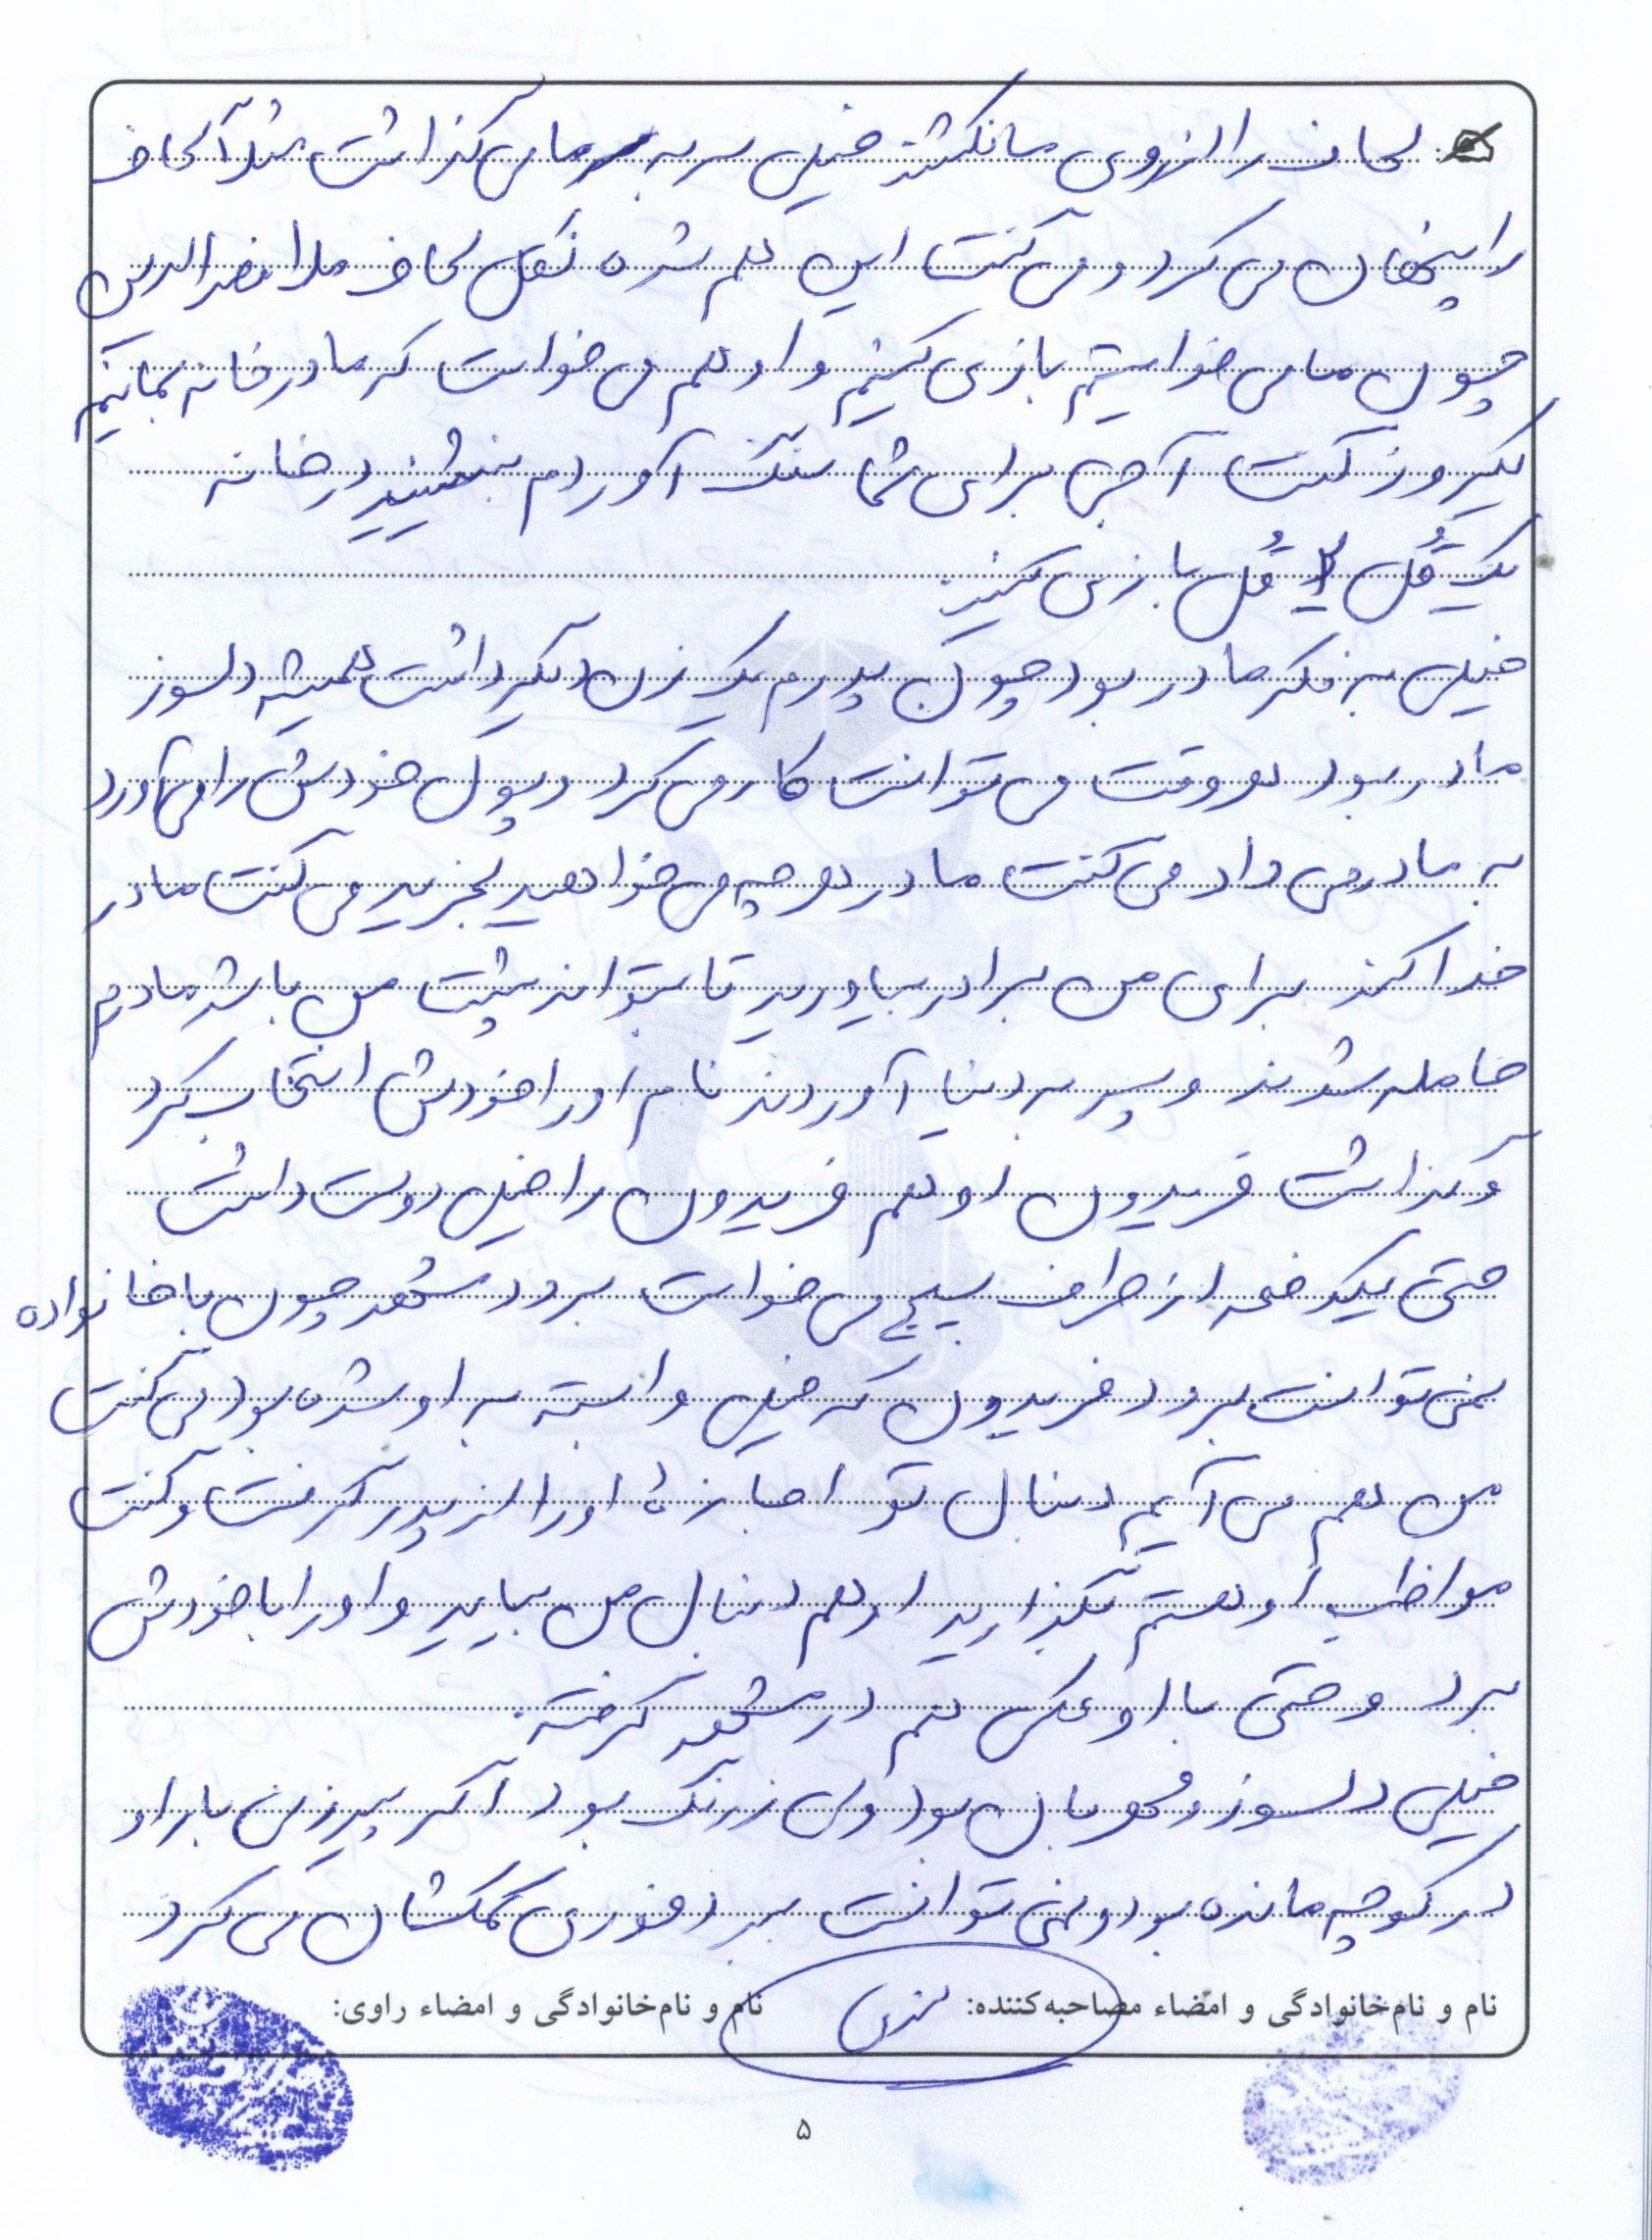 لحاف را از روی ما نکشند خیلی سر به سر ما می گذاشت مثلاً لحاف
را پنهان می کرد و می گفت این هم شده نقل لحاف ملا نصرالدین
چون ما می خواستیم بازی کنیم و او هم می خواست که ما در خانه بمانیم
یکروز گفت آجی برای شما سنگ آوردم بنشینید در خانه
یک قُل دُ قُل بازی کنید.
خیلی به فکر مادر بود چون پدرم یک زن دیگر داشت همیشه دلسوز
مادر بود هر وقت می توانست کار می کرد و پول خودش را می آورد
به مادر می داد می گفت مادر هر چه می خواهید بخرید می گفت مادر
خدا کند برای من برادر بیاورید تا بتواند پشت من باشد مادرم
حامله شدند و پسر به دنیا آوردند نام او را خودش انتخاب کرد
و گذاشت فریدون او هم فریدون را خیلی دوست داشت
حتی یکدفعه از طرف بسیج می خواست برود مشهد چون با خانواده
نمی توانست برود فریدون که خیلی وابسته به او شده بود می گفت
من هم می آیم دنبال تو اجازهٔ او را از پدر گرفت و گفت
مواظب او هستم بگذارید او هم دنبال من بیاید و او را با خودش
برد و حتی با او عکس هم در مشهد گرفته.
خیلی دلسوز و مهربان بود ولی زرنگ بود اگر پیرزنی بار او
در کوچه مانده بود و نمی توانست ببرد فوری کمکشان می کرد
نام و نام‌خانوادگی و امضاء مصاحبه‌کننده:
نام و نام‌خانوادگی و امضاء راوی:
۵